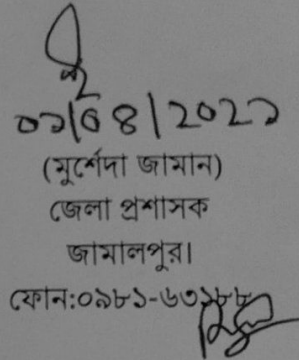 ০১/০৪/২০২১
(মুর্শেদা জামান)
জেলা প্রশাসক
জামালপুর।
ফোন:০৯৮১-৬৩১৮৮